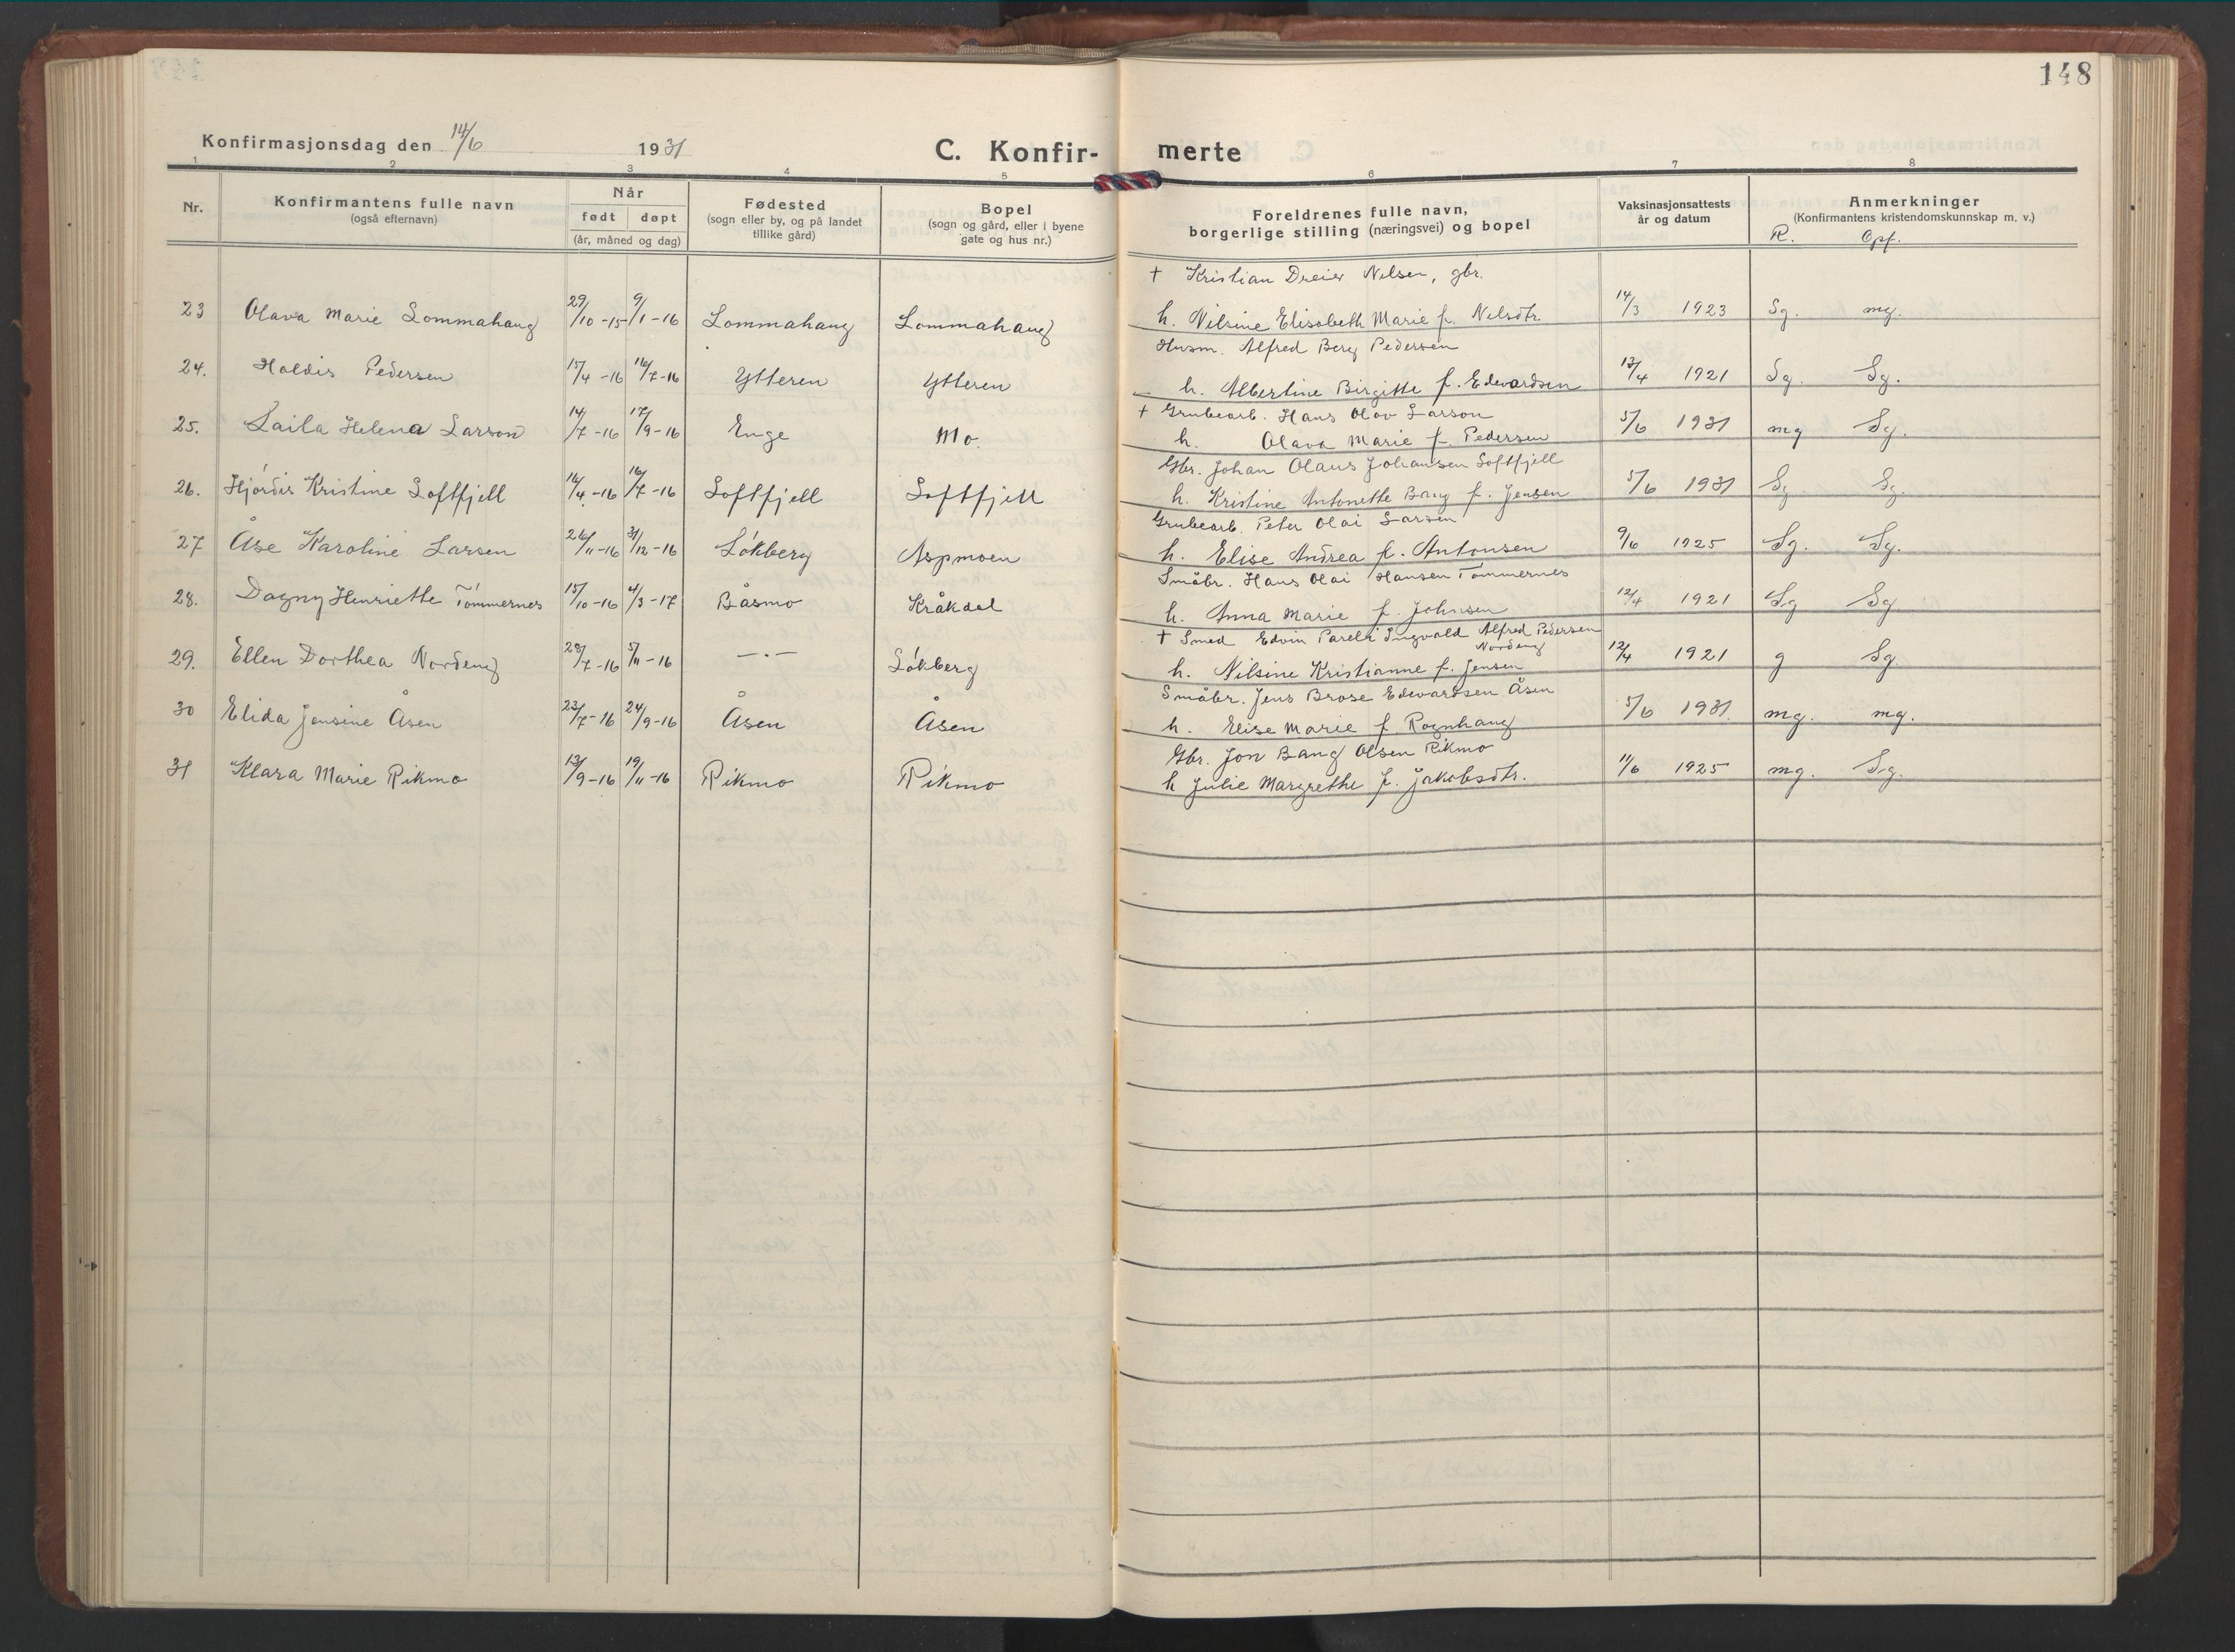 148
Konfirmasjonsdag den 14/6 1931 C. Konfir- merte
1 2 3 4 5 6 7 8
Nr. Konfirmantens fulle navn (også efternavn) Når født døpt (år, måned og dag) Fødested (sogn eller by, og på landet tillike gård) Bopel (sogn og gård, eller i byene gate og hus nr.) Foreldrenes fulle navn, borgerlige stilling (næringsvei) og bopel Vaksinasjonsattests år og datum Anmerkninger (Konfirmantens kristendomskunnskap m. v.)
R. Opf.
† Kristian Dreier Nilsen, gbr.
23 Olava Marie Lommahaug 29/10-15 9/1-16 Lommahaug Lommahaug h. Nilsine Elisabeth Marie f. Nelsdtr. 14/3 1923 Sg. mg.
Husm. Alfred Berg Pedersen
24. Haldis Pedersen 15/4-16 16/7-16 Ytteren Ytteren h. Albertine Birgitte f. Edvardsen 13/4 1921 Sg. Sg.
† Grubearb. Hans Olav Larson
25. Laila Helena Larson 14/7-16 17/9-16 Enge Mo. h. Olava Marie f. Pedersen 5/6 1931 mg Sg.
Gbr. Johan Olaus Johansen Loftfjell
26. Hjördis Kristine Loftfjell 14/4-16 16/7-16 Loftfjell Loftfjell h. Kristine Antonette Bang f. Jensen 5/6 1931 Sg. Sg.
Grubearb. Peter Olai Larsen
27 Åse Karoline Larsen 26/11-16 31/12-16 Lökberg Aspmoen h. Elise Andrea f. Antonsen 9/6 1925 Sg. Sg.
Småbr. Hans Olai Hansen Tömmernes
28. Dagny Henriette Tömmernes 15/10-16 4/3-17 Båsmo Kråkdal h. Anna Marie f. Johnsen 12/4 1921 Sg Sg
† Smed Edvin Pareli Ingvald Alfred Pedersen Nordeng
29. Ellen Dorthea Nordeng 29/7-16 5/11-16 —·— Lökberg h. Nilsine Kristianne f. Jensen 12/4 1921 g Sg.
Småbr. Jens Brose Edvardsen Åsen
30 Elida Jensine Åsen 23/7-16 24/9-16 Åsen Åsen h. Elise Marie f. Rognhaug 5/6 1931 mg. mg.
Gbr. Jon Bang Olsen Rikmo
31 Klara Marie Rikmo 13/9-16 19/11-16 Rikmo Rikmo h Julie Margrethe f. Jakobsdtr. 11/6 1925 mg. Sg.